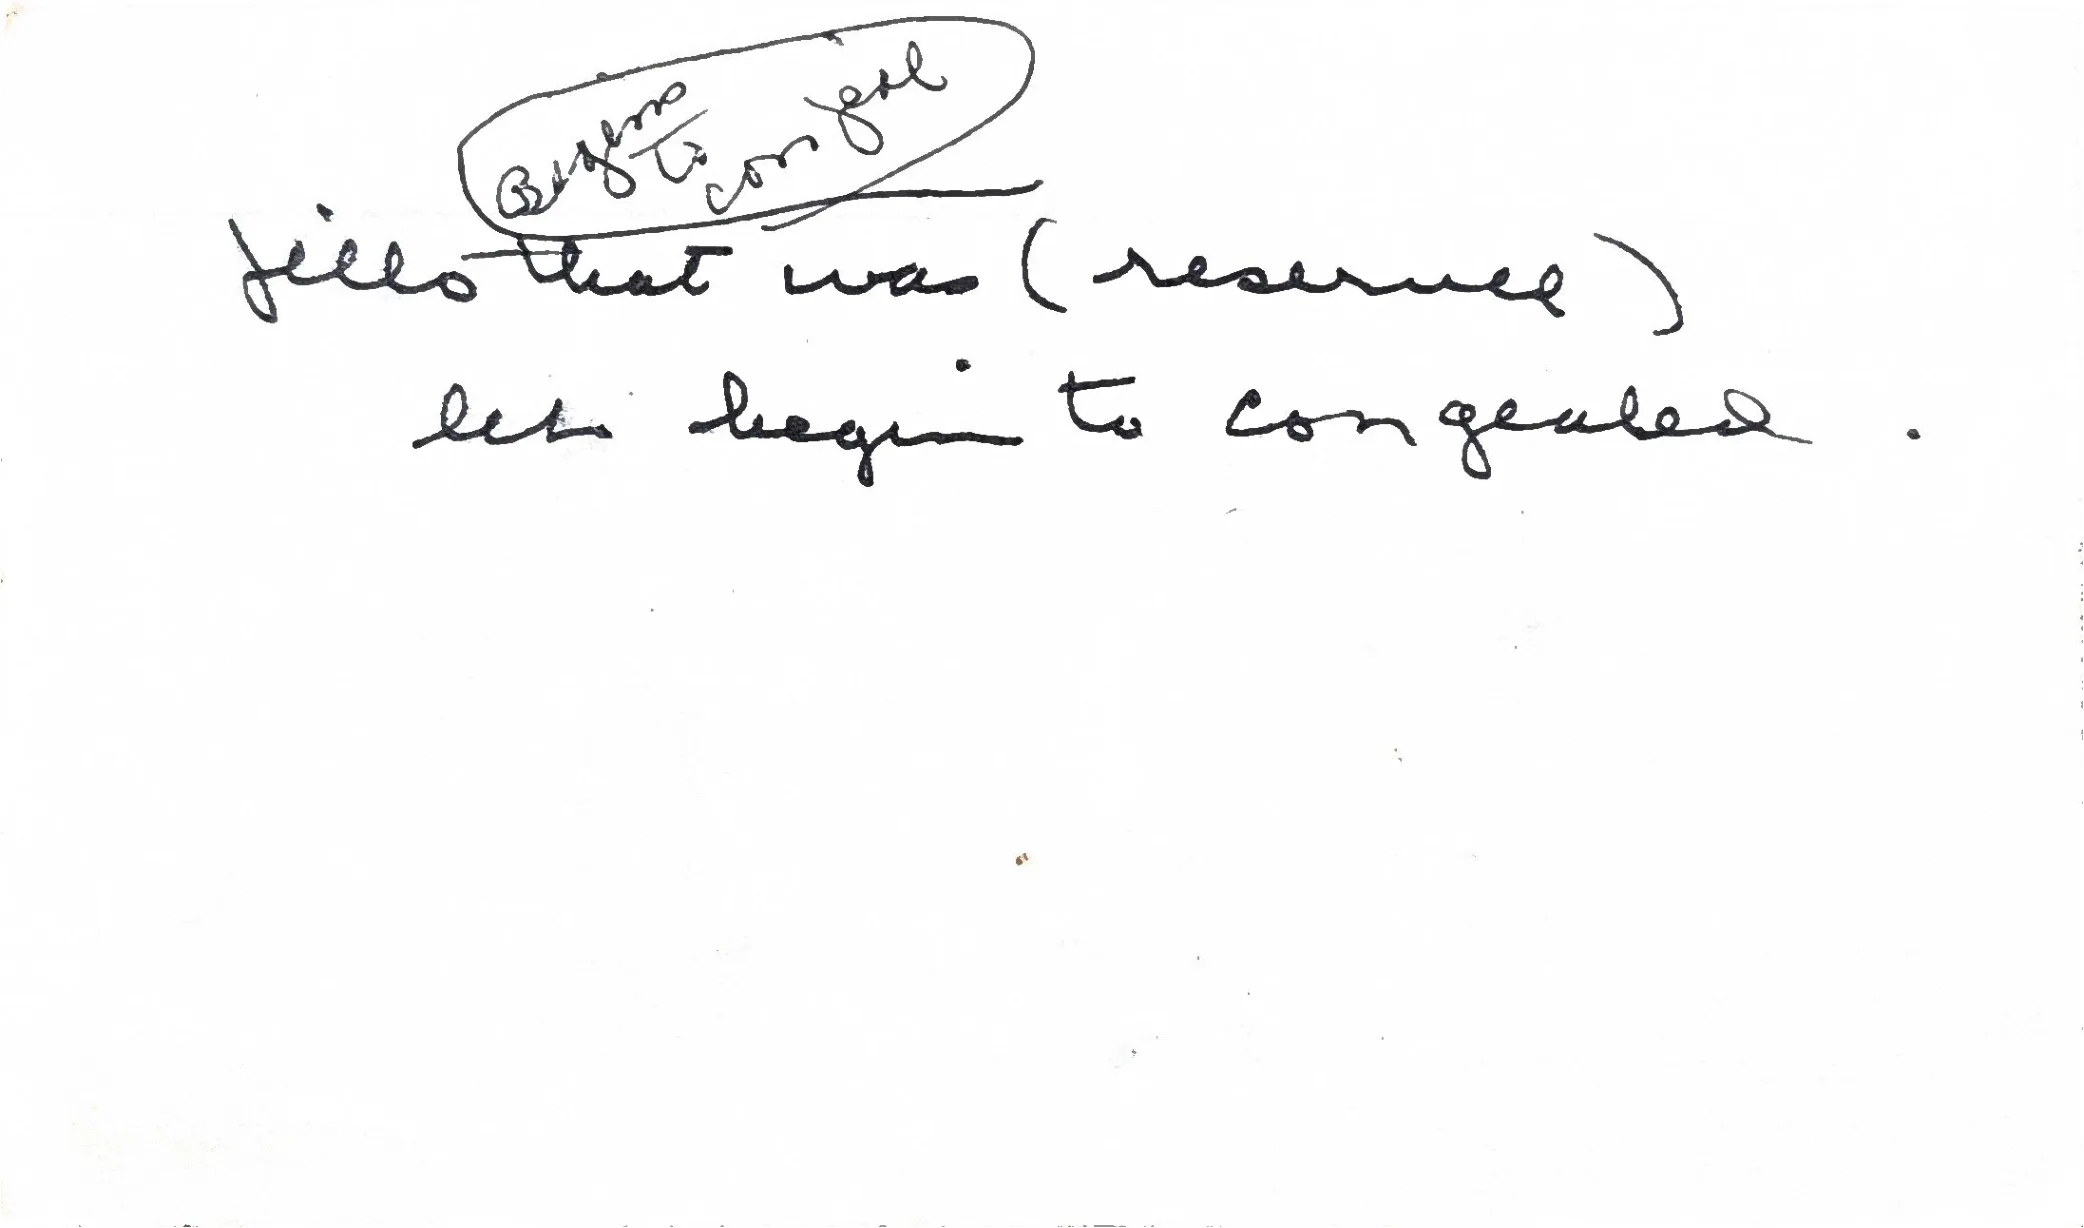 Begins
to
congeal
jello that was (reserved)
let begin to congealed.